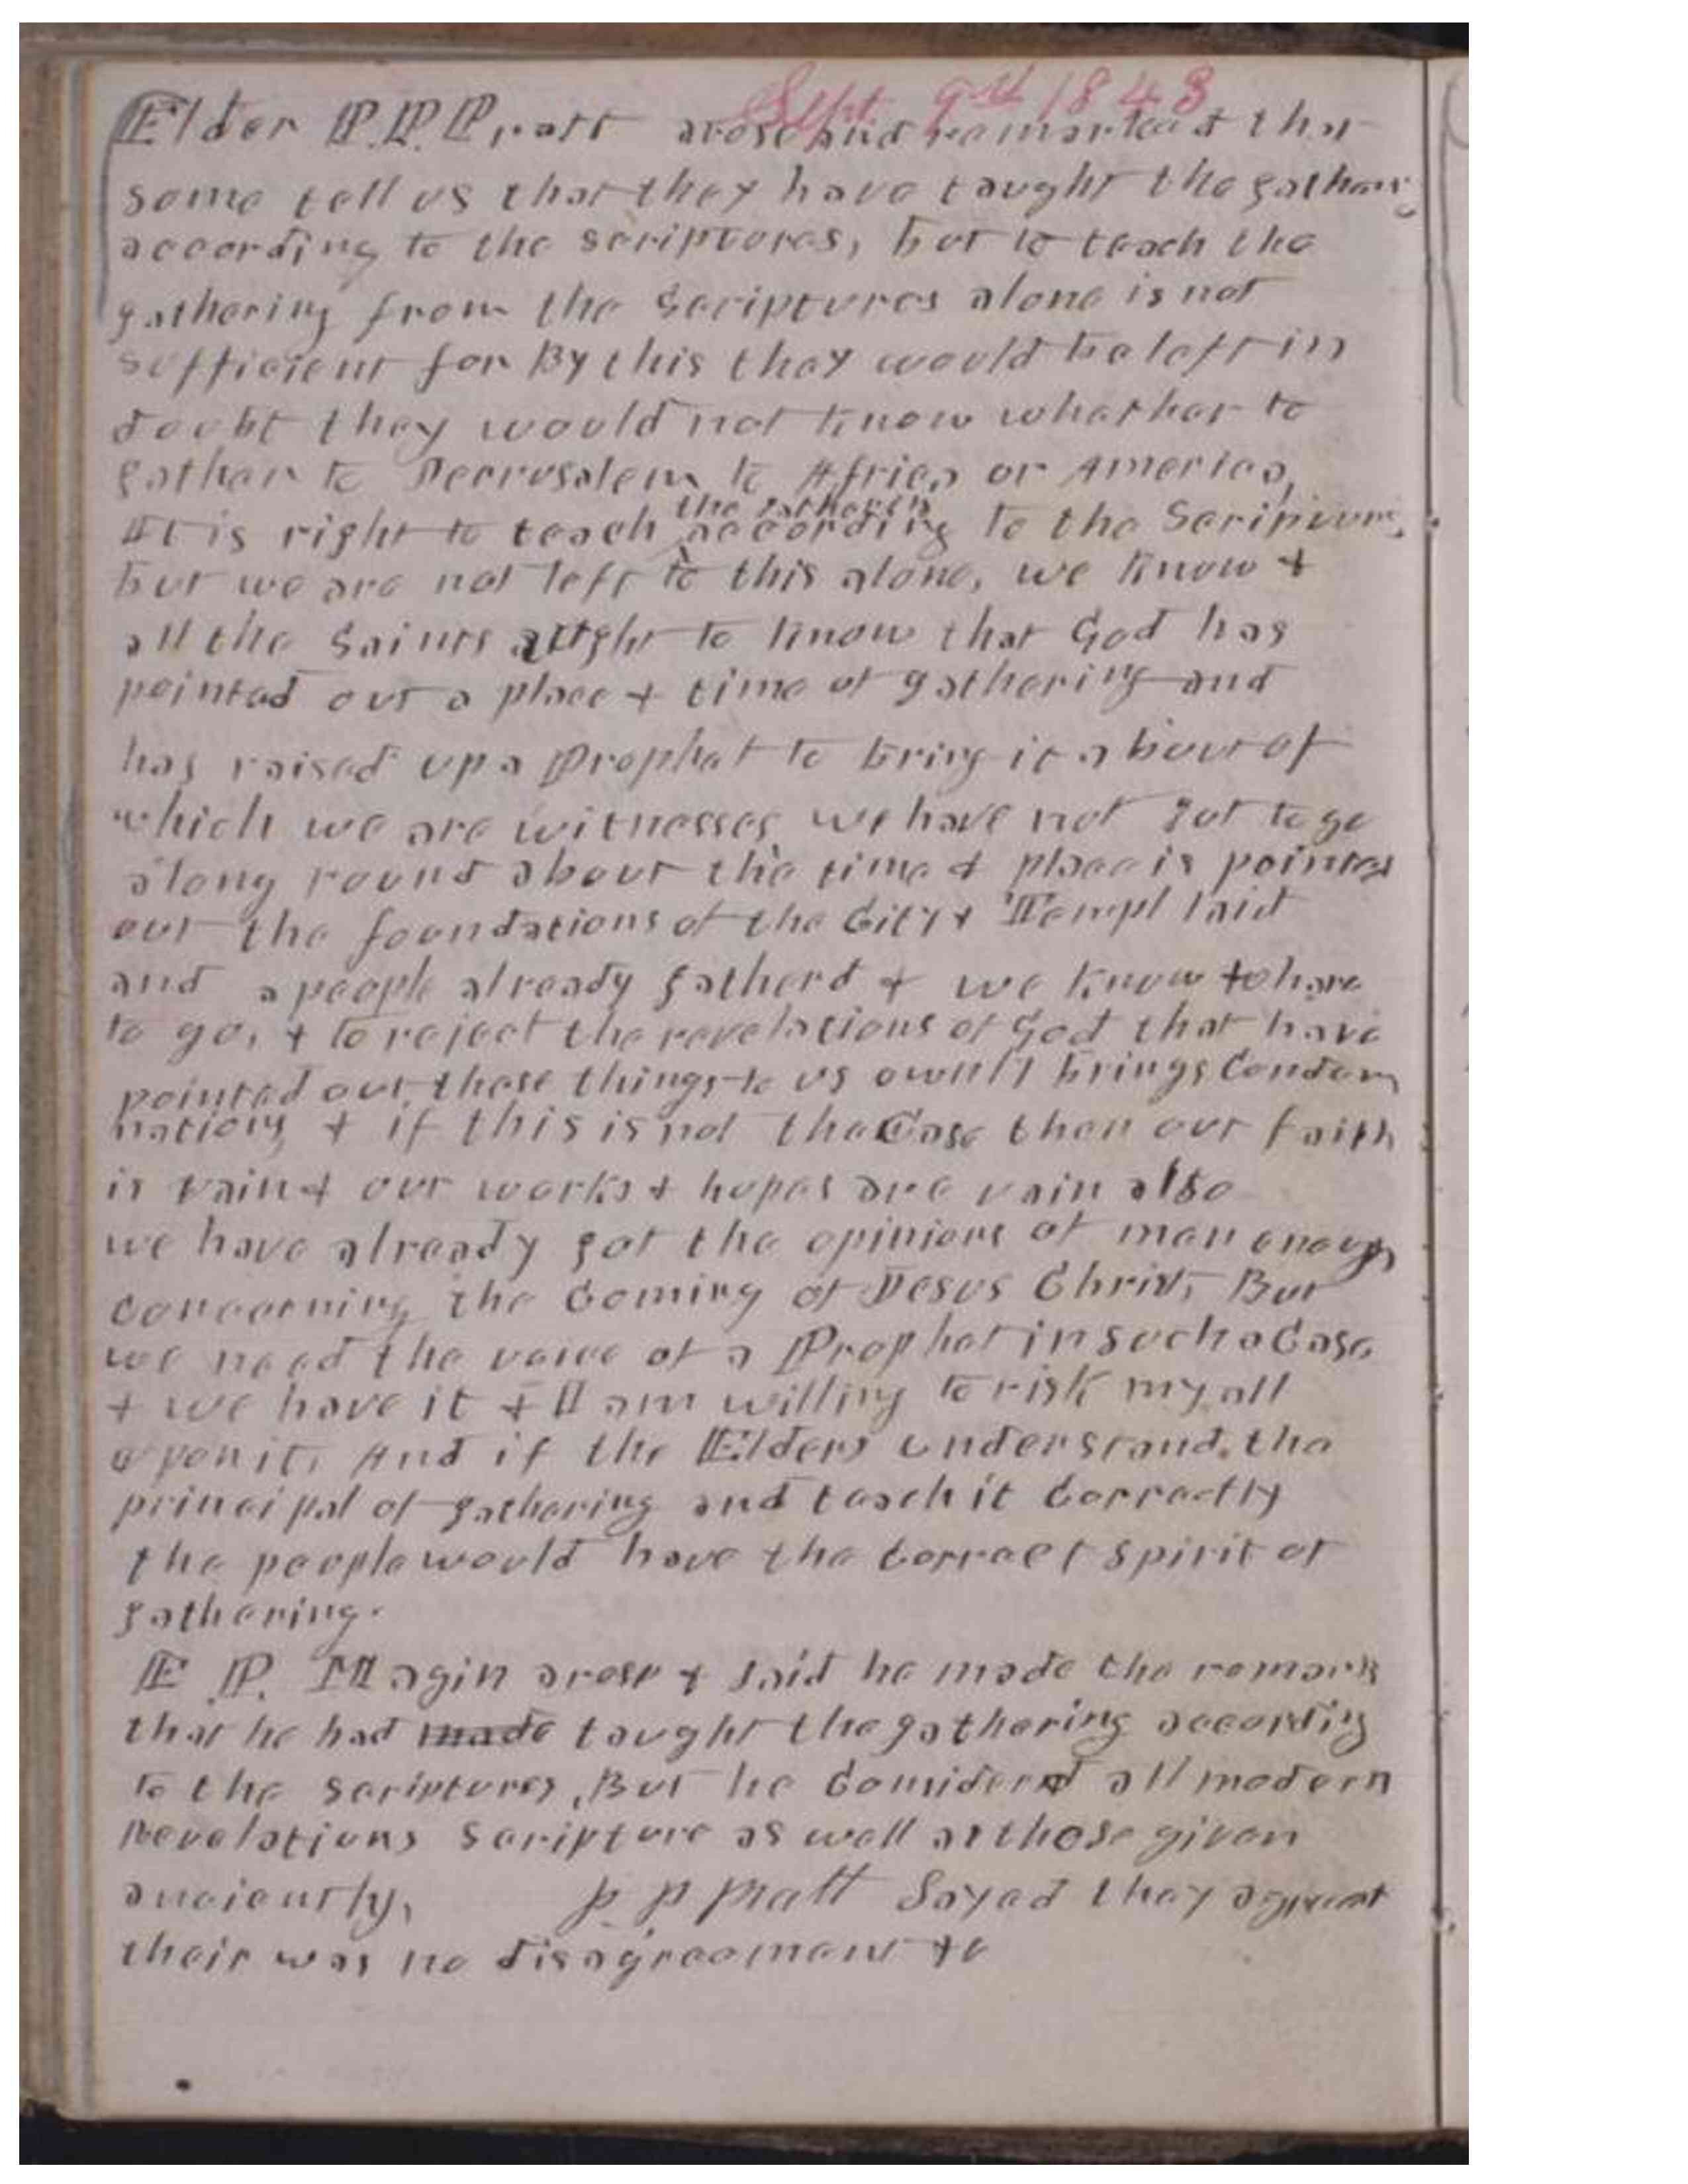 Sept. 9th 1843
Elder P.P. Pratt arose and remarked that
some tell us that they have taught the gathering
according to the scriptures, but to teach the
gathering from the Scriptures alone is not
sufficient for By this they would be left in
doubt they would not know whether to
gather to Jerrusalem to Africa or America,
It is right to teach the gathering according to the Scriptures,
but we are not left to this alone, we know +
all the Saints aught to know that God has
pointed out a place + time of gathering and
has raised up a Prophet to bring it about of
which we are witnesses we have not got to go
along round about the time + place is pointed
out the foundations of the City + Templ laid
and a people already gatherd + we know whare
to go, + to reject the revelations of God that have
pointed out these things to us ownly brings Condem
nations + if this is not the Case then our faith
is vain + our works + hopes are vain also
we have already got the opinions of men enough
concerning the Coming of Jesus Christ, But
we need the voice of a Prophet in such a Case
+ we have it + I am willing to risk my all
upon it, And if the Elders understand the
principal of gathering and teach it Correctly
the people would have the Correct spirit of
gathering.
E. P. Magin arose + said he made the remark
that he had made taught the gathering according
to the scriptures, But he Considerd all modern
Revelations Scripture as well as those given
anciently, P. P. Pratt Sayed they agreeat
their was no disagreement +c